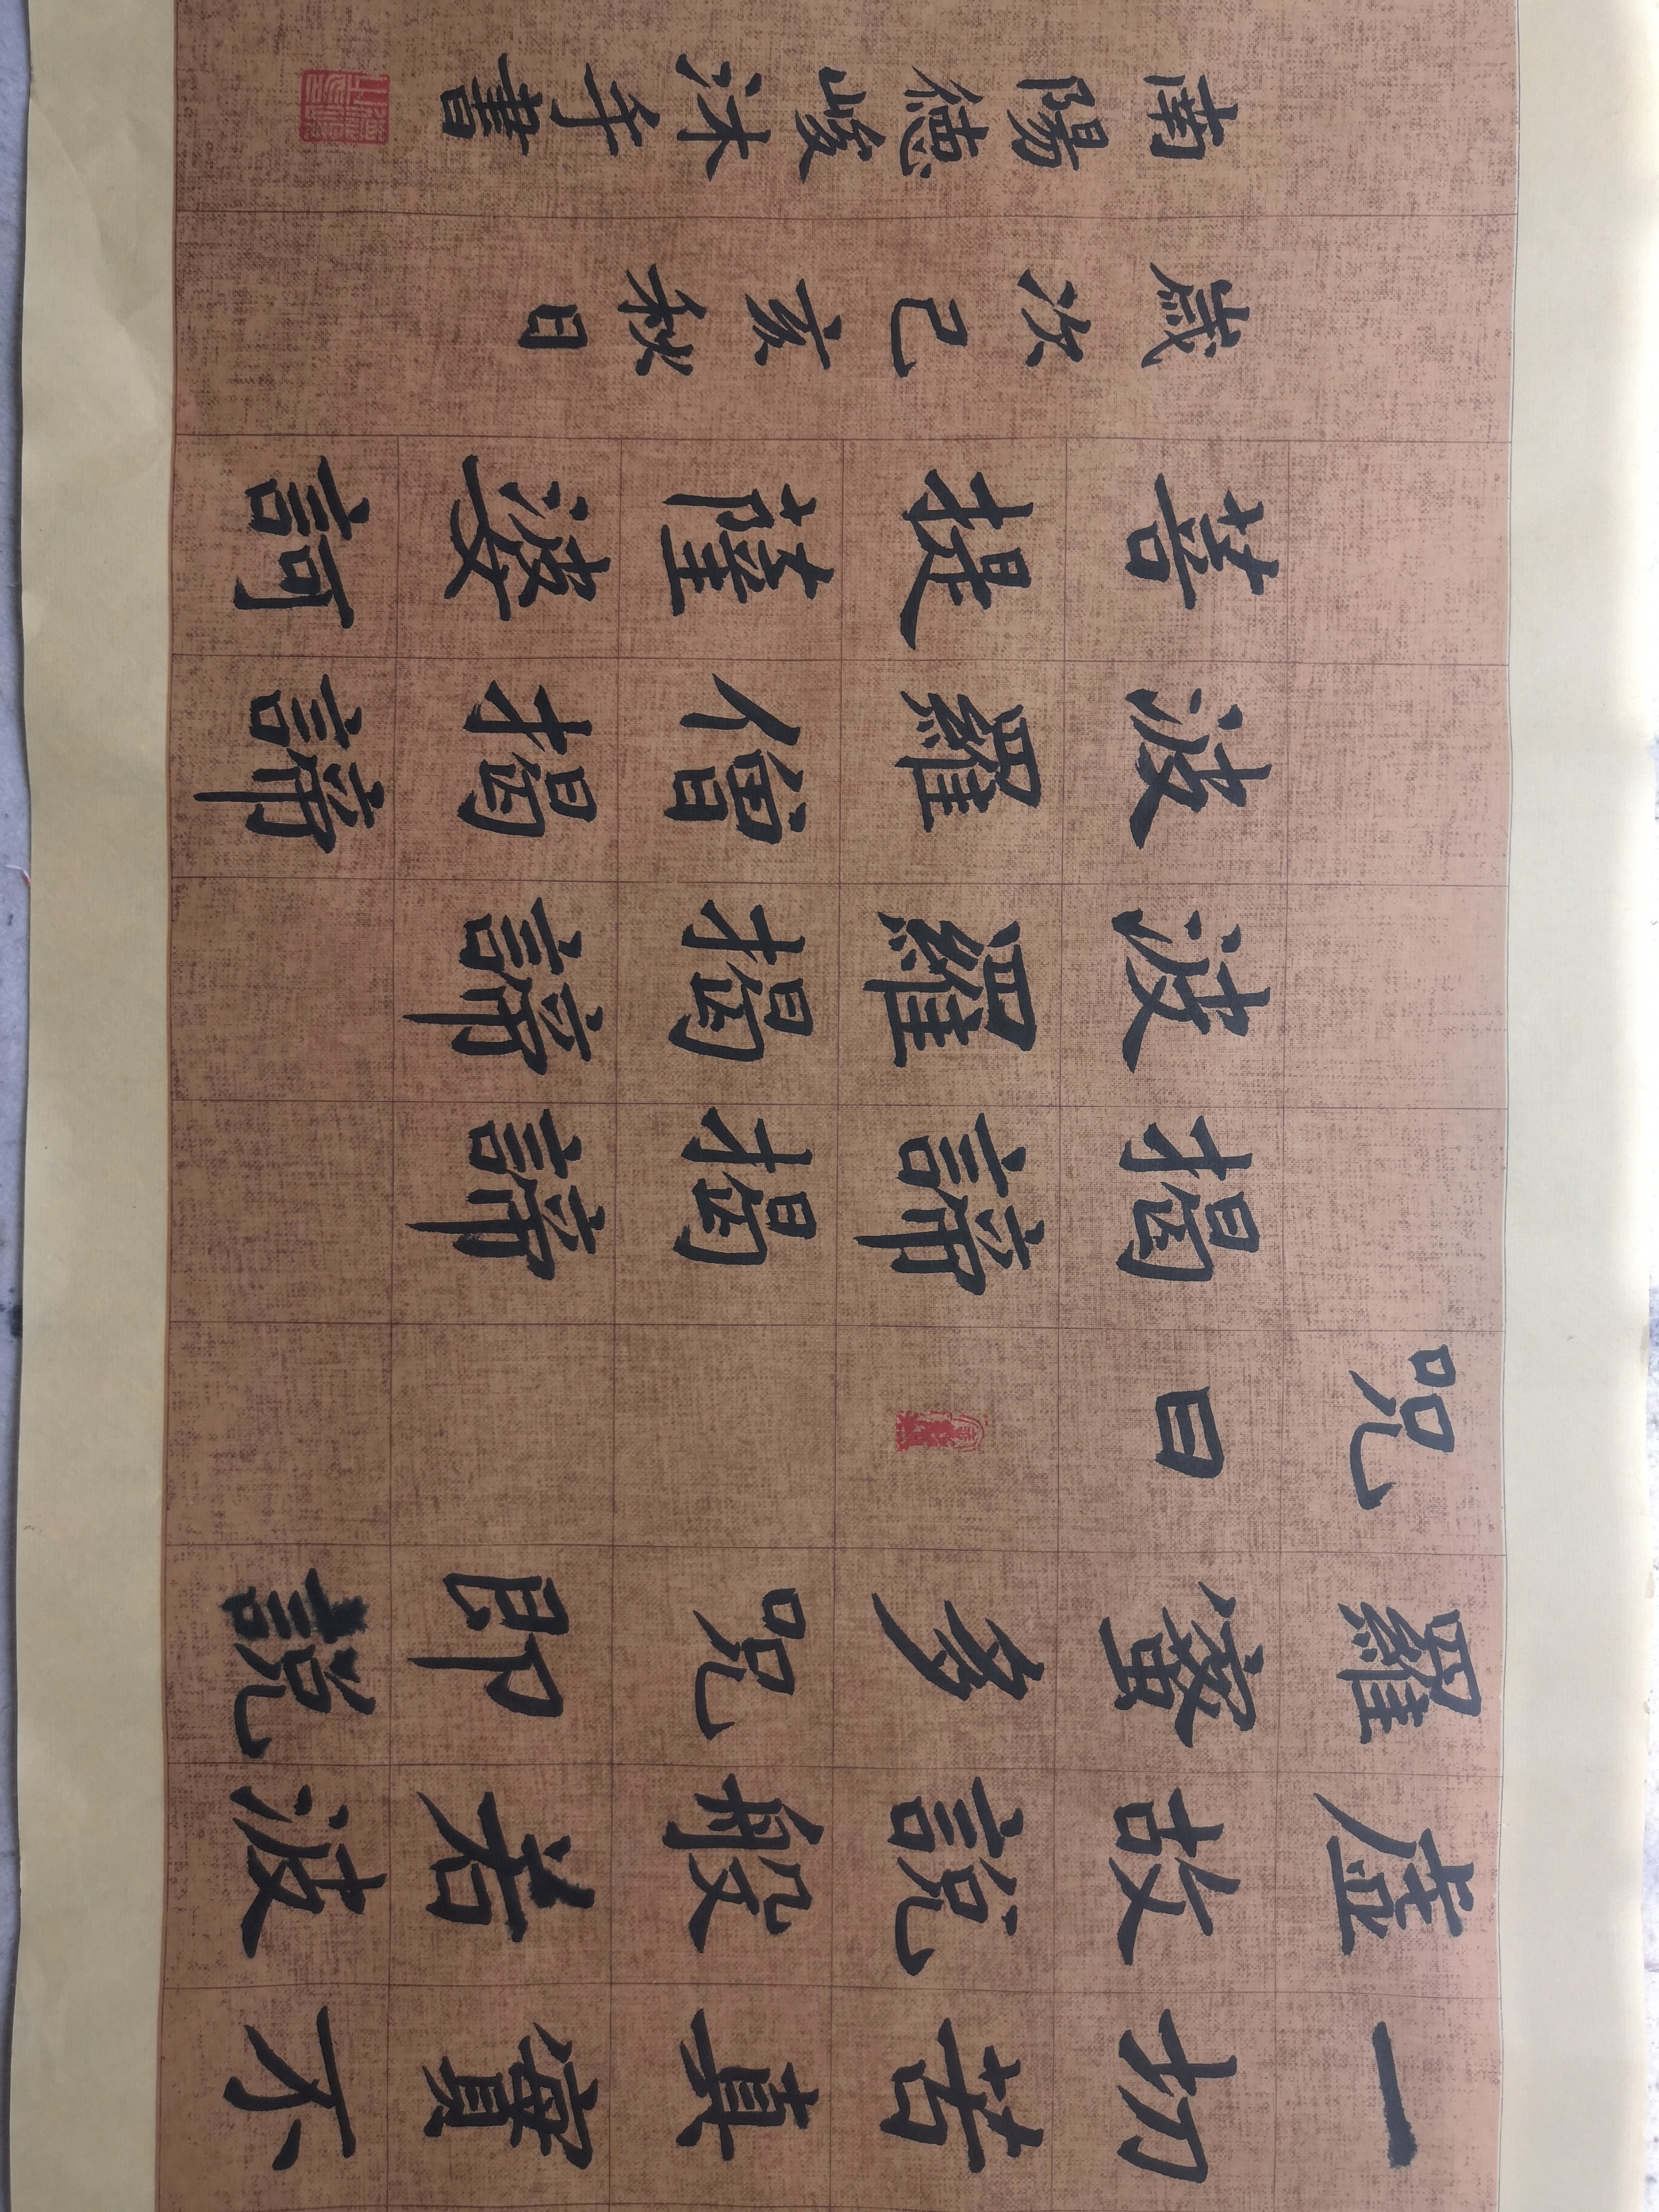 一切苦真實不
虛故說般若波
羅蜜多咒即說
咒曰
揭諦揭諦
波羅揭諦
波羅僧揭諦
菩提薩婆訶
歲次己亥秋日
南陽德峻沐手書